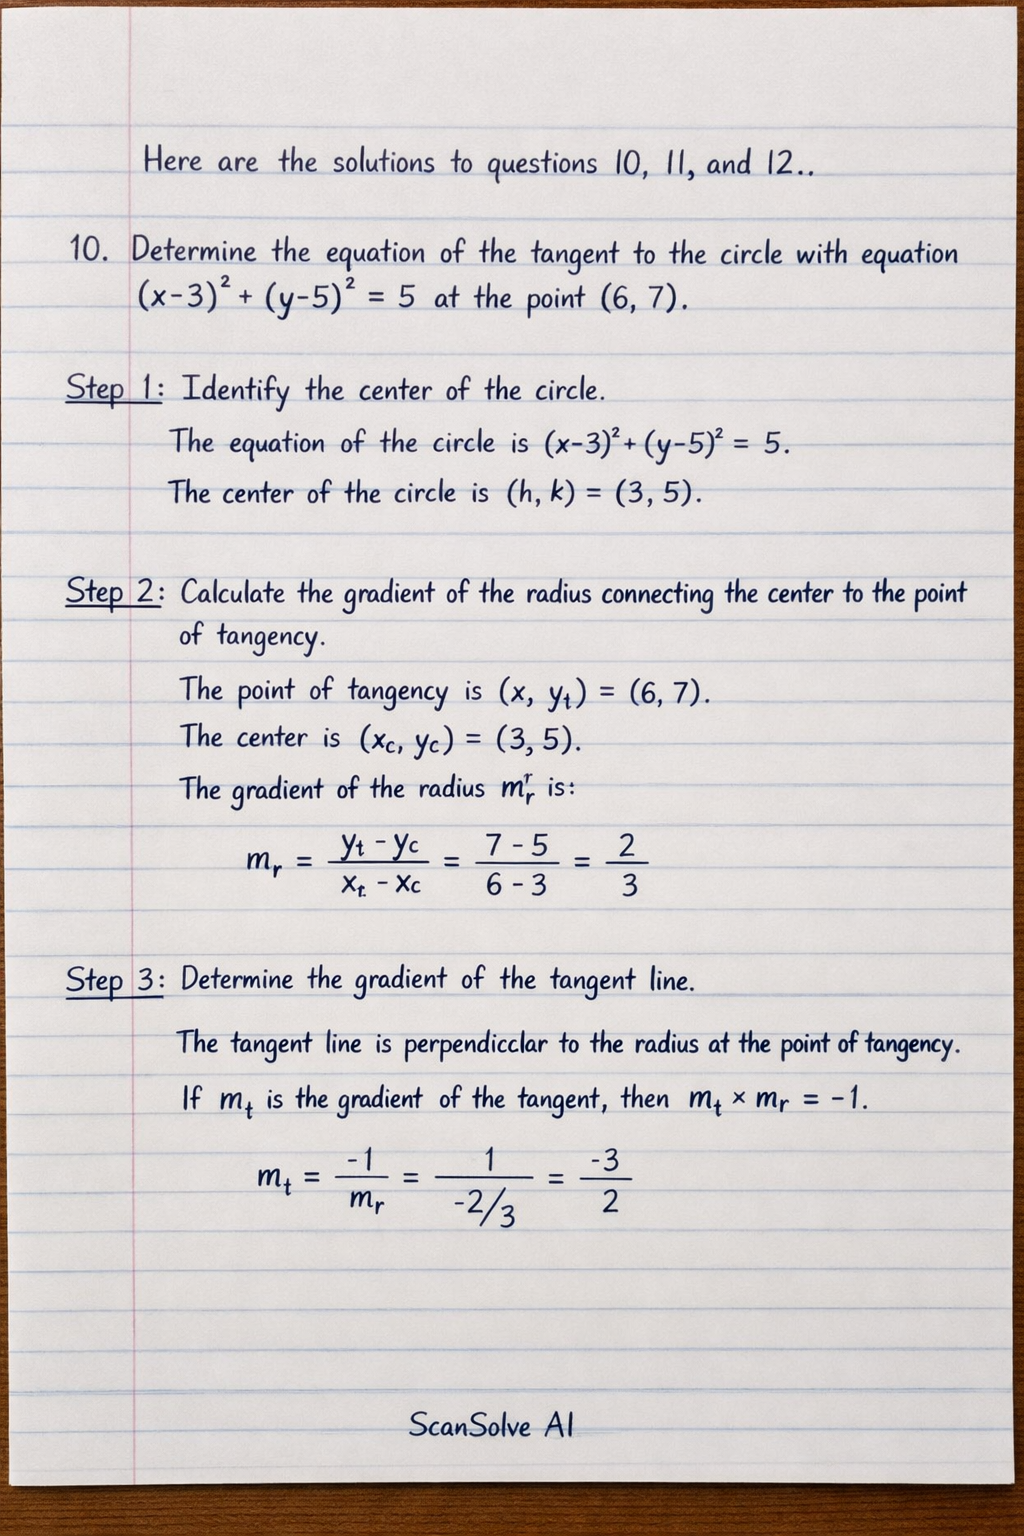 Here are the solutions to questions 10, 11, and 12..
10. Determine the equation of the tangent to the circle with equation
(x-3)² + (y-5)² = 5 at the point (6, 7).
Step 1: Identify the center of the circle.
The equation of the circle is (x-3)² + (y-5)² = 5.
The center of the circle is (h, k) = (3, 5).
Step 2: Calculate the gradient of the radius connecting the center to the point
of tangency.
The point of tangency is (x, yₜ) = (6, 7).
The center is (x_c, y_c) = (3, 5).
The gradient of the radius mᵣʳ is:
mᵣ = (yₜ - y_c)/(xₜ - x_c) = (7 - 5)/(6 - 3) = 2/3
Step 3: Determine the gradient of the tangent line.
The tangent line is perpendicclar to the radius at the point of tangency.
If mₜ is the gradient of the tangent, then mₜ × mᵣ = -1.
mₜ = -1/mᵣ = 1/(-2/3) = -3/2
ScanSolve AI